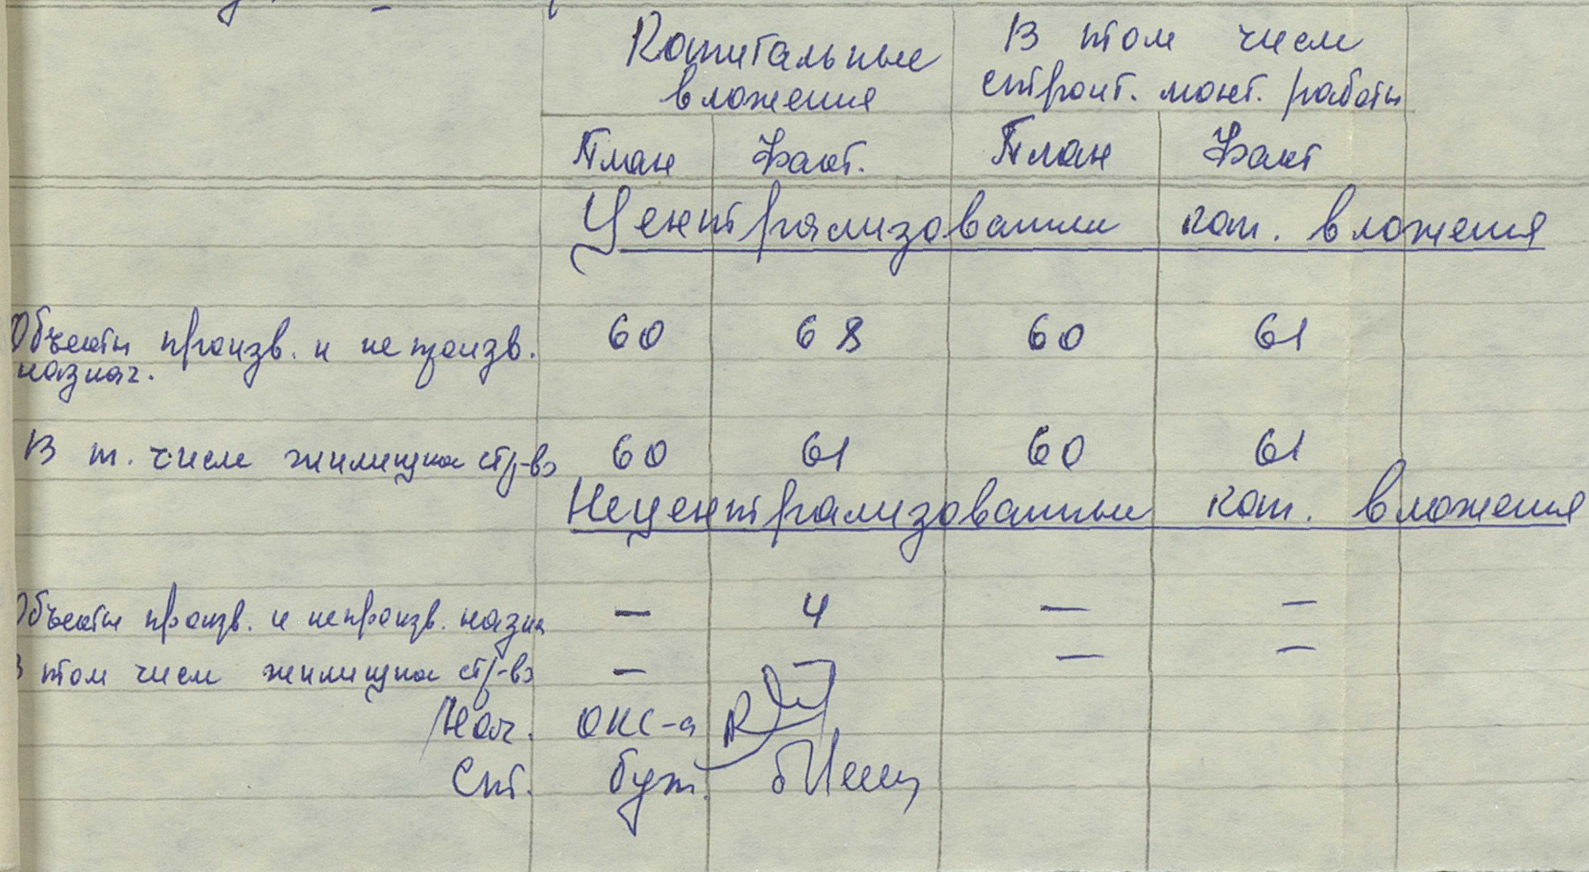 Капитальные В том числе
вложения строит. монт. работы
План Факт. План Факт
Централизованные кап. вложения
Объекты произв. и не произв. 60 68 60 61
назнач.
В т. числе жилищное стр-во 60 61 60 61
Нецентрализованные кап. вложения
Объекты произв. и непроизв. назнач — 4 — —
В том числе жилищное стр-во — — — —
Нач. ОКС-а
Ст. бух.